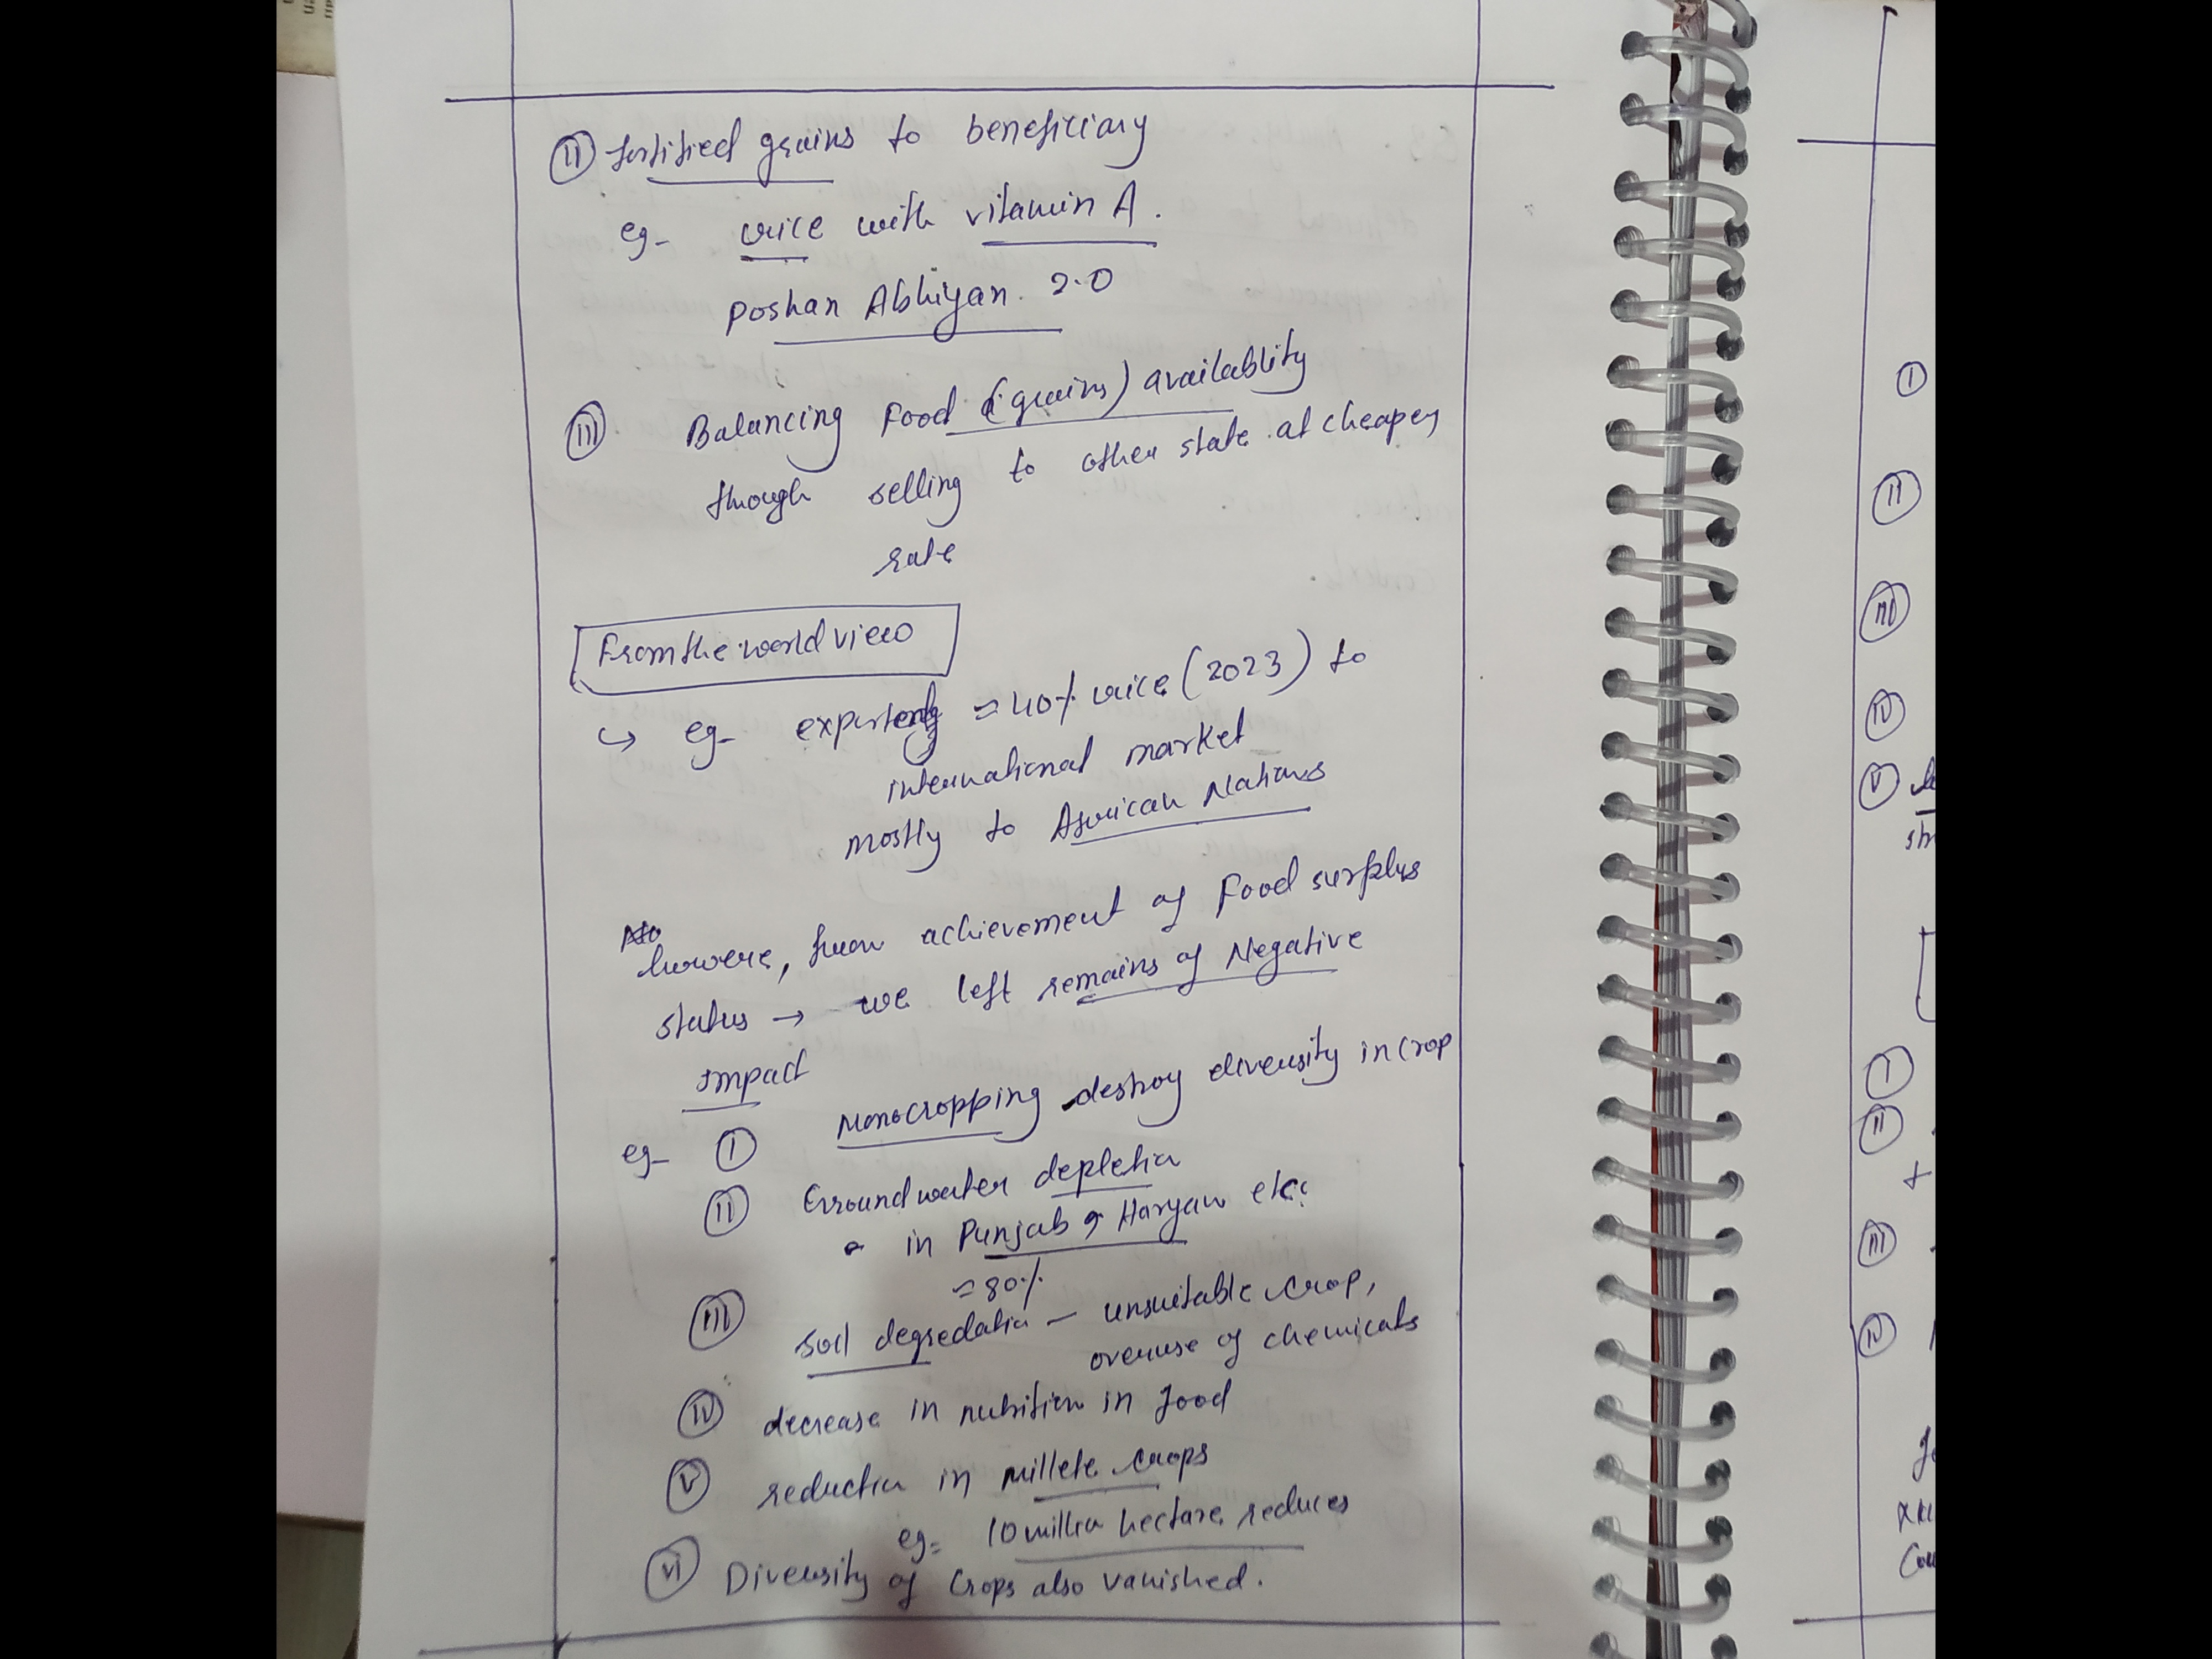 (II) fortified grains to beneficiary
eg- rice with vitamin A.
Poshan Abhiyan 2.0
(III) Balancing Food (grains) availablity
through selling to other state at cheaper
rate
From the world view
↪ eg- exporting ≈ 40% rice (2023) to
international market
mostly to African Nations
howere, from achievement of Food surplus
status → we left remains of Negative
Impact
eg- (I) Monocropping destroy diversity in crop
(II) Groundwater depletion
in Punjab, Haryan etc.
≈ 80%
(III) soil degredation - unsuitable crop,
overuse of chemicals
(IV) decrease in nutrition in food
(V) reduction in millete crops
eg= 10 million hectare reduces
(VI) Diversity of Crops also vanished.
(I)
(II)
(III)
(IV)
(V)
(I)
(II)
+
(III)
(IV)